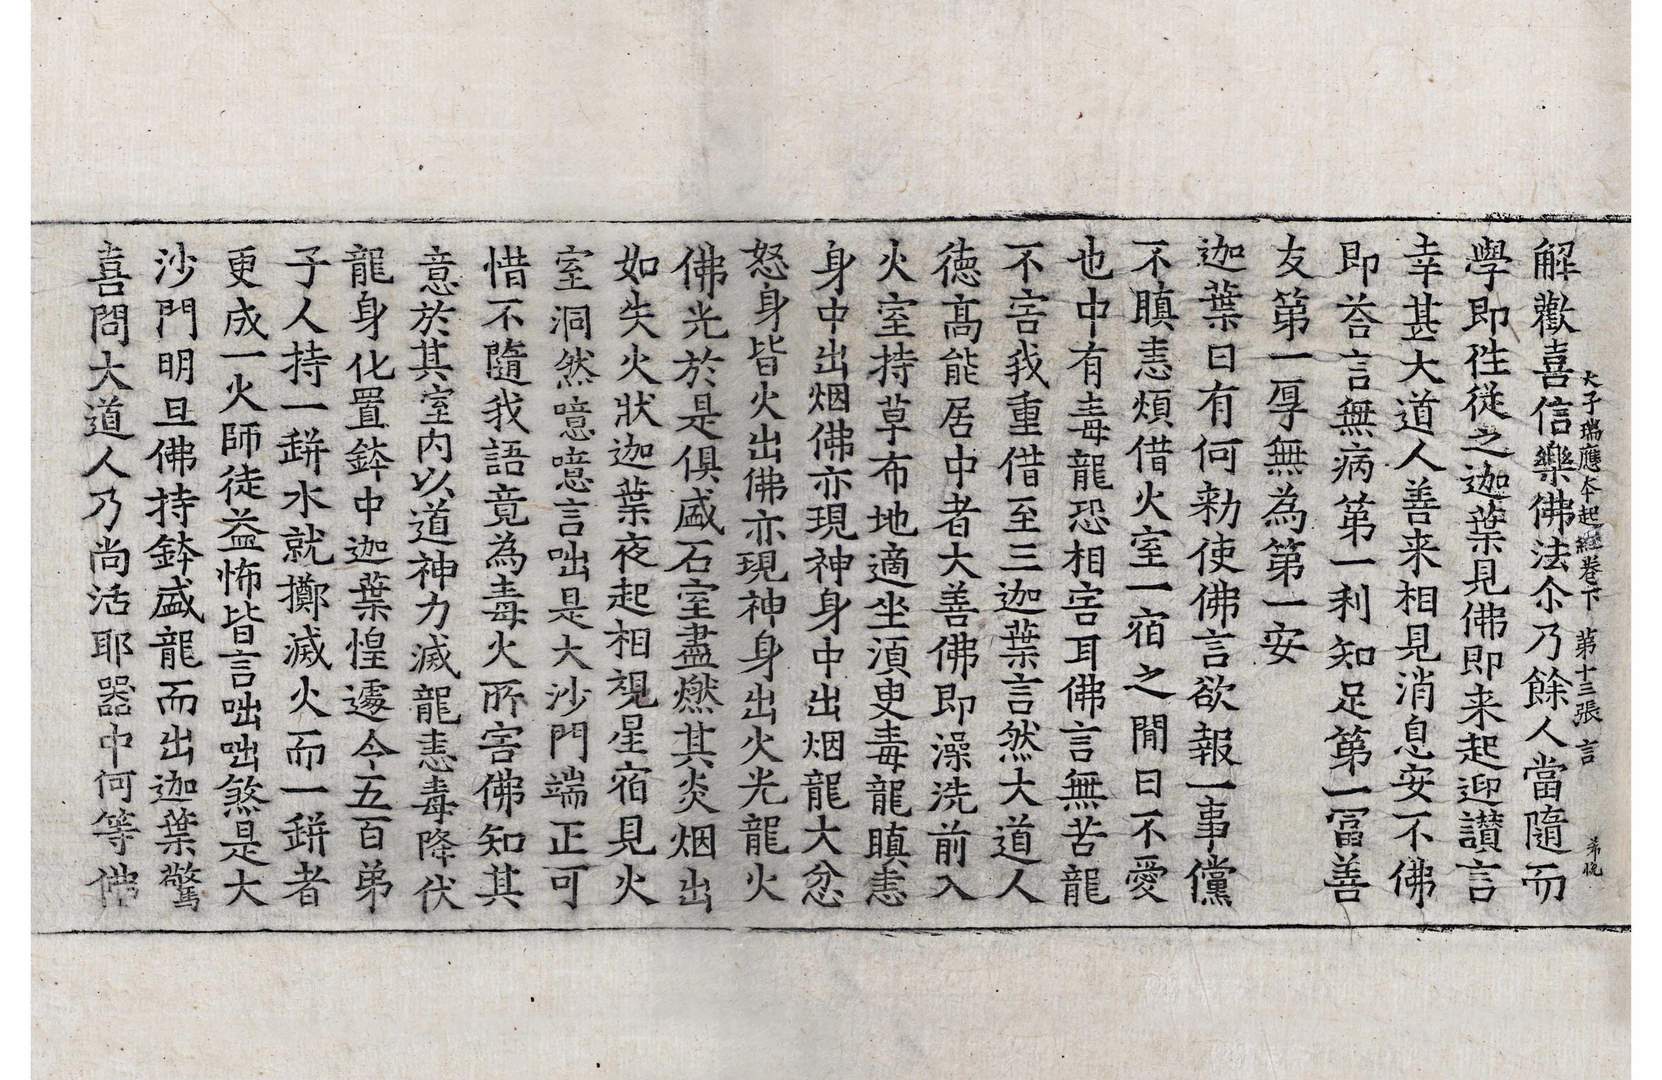 太子瑞應本起經卷下 第十三張 言
解歡喜信樂佛法尒乃餘人當隨而
學即徃從之迦葉見佛即来起迎讃言
幸甚大道人善来相見消息安不佛
即荅言無病第一利知足第一冨善
友第一厚無為第一安
迦葉曰有何勑使佛言欲報一事儻
不瞋恚煩借火室一宿之閒曰不愛
也中有毒龍恐相害耳佛言無苦龍
不害我重借至三迦葉言然大道人
徳髙能居中者大善佛即澡洗前入
火室持草布地適坐湏臾毒龍瞋恚
身中出烟佛亦現神身中出烟龍大忿
怒身皆火出佛亦現神身出火光龍火
佛光於是俱盛石室盡燃其炎烟出
如失火狀迦葉夜起相視星宿見火
室洞然噫噫言咄是大沙門端正可
惜不隨我語竟為毒火所害佛知其
意於其室内以道神力滅龍恚毒降伏
龍身化置鉢中迦葉惶遽令五百弟
子人持一缾水就擲滅火而一缾者
更成一火師徒益怖皆言咄咄煞是大
沙門明旦佛持鉢盛龍而出迦葉驚
喜問大道人乃尚活耶器中何等佛